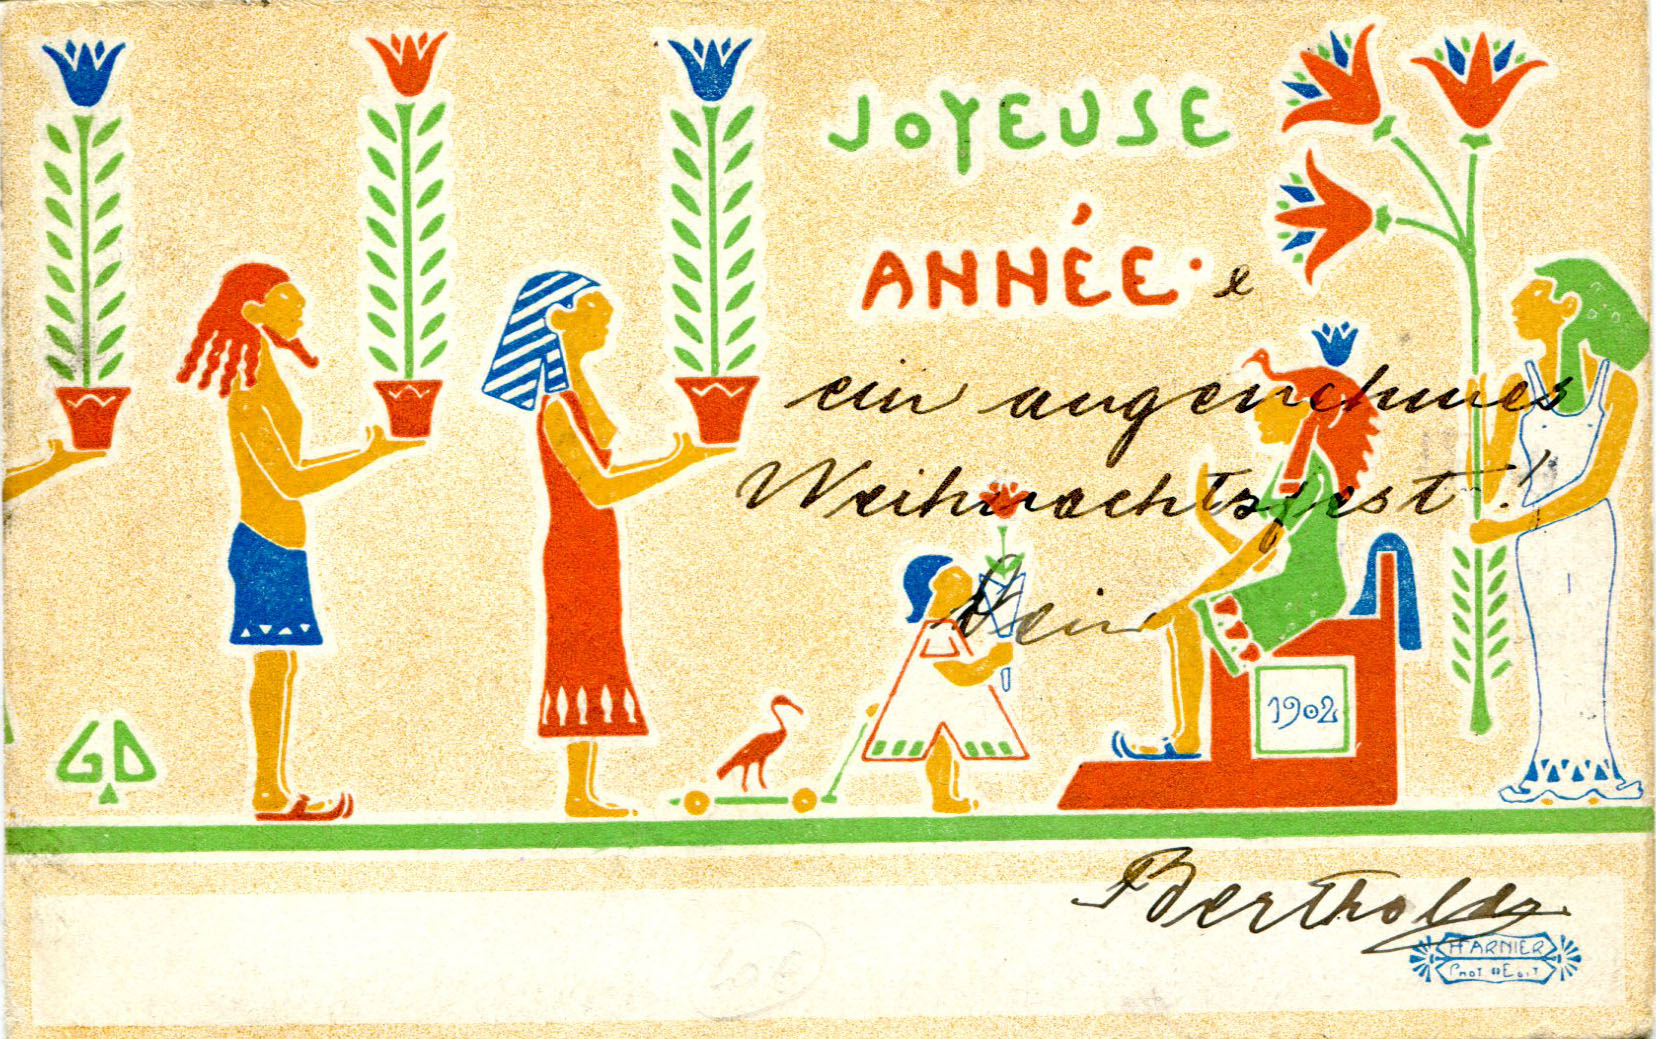 JOYEUSE
ANNÉE. &
ein angenehmes
Weihnachtsfest!
Dein
1902
GD
Berthold
HARNIER
PHOT. EDIT